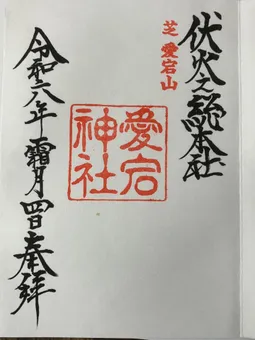 伏火之総本社
芝愛宕山
愛宕神社
令和六年霜月四日奉拝